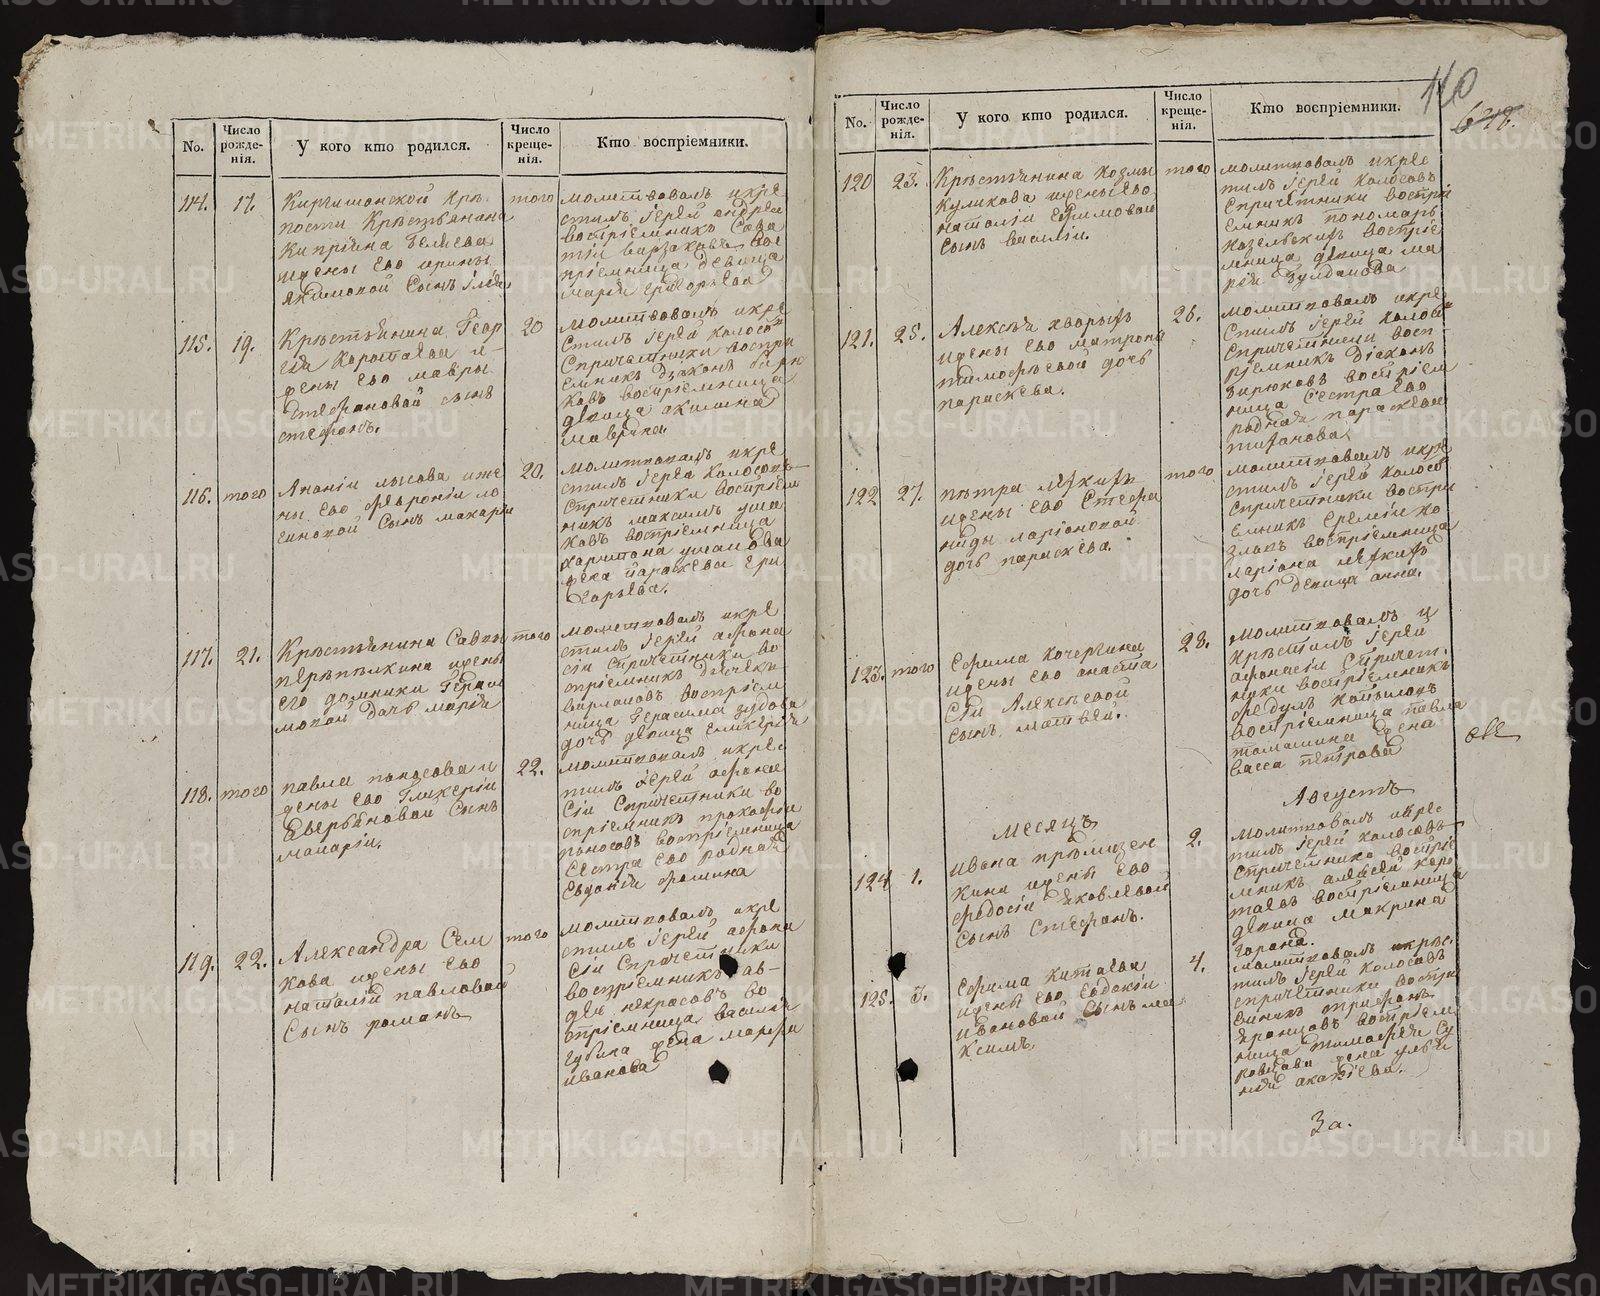 No.
Число рожде-нія.
У кого кто родился.
Число креще-нія.
Кто воспріемники.
114. 17. Киргишанской крѣ
пости крѣстьянина
Кипріяна Беляева
жены его ирины
якимовой сынъ Илія
того
молитвовалъ икре
стилъ іерей андрей
воспріемникъ Сава
воспріемница девица
марія григорьева
115. 19. Крѣстьянина Геор
гія Коротаева и
жены его мавры
Стефановой сынъ
стефанъ.
20
молитвовалъ икре
стилъ іерей колосовъ
Спричетники воспри
емникъ діаконъ бирю
ковъ воспріемница
девица акилина
маврина.
116. того Ананіи лысова ижe
ны его февроніи ло
гиновой Сынъ макарій
20.
молитвовалъ икре
стилъ іерей колосовъ
Спричетники воспріем
никъ максимъ уша
ковъ воспріемница
харитона ушакова
жена Параскева Гри
горьева.
117. 21. Крѣстьянина Саввы
перепѣлкина жены
его домники Гераси
мовой дочь марія
того
молитвовалъ икре
стилъ іерей афана
сій Спричетники во
спріемникъ дьячекъ
варлаковъ воспріем
ница Герасима зудова
дочь девица Гликерія
118. того павла паносова и
жены его Гликеріи
Еверьяновой Сынъ
макарій.
22.
молитвовалъ икре
стилъ іерей афана
сій Спричетники во
спріемникъ прокофій
паносовъ воспріемница
Сестра его родная
Евдокія фомина
119. 22. Александра Сем
кова жены его
наталіи павловой
Сынъ романъ
того
молитвовалъ икре
стилъ іерей афана
сій Спричетники
воспріемникъ ав-
дѣй некрасовъ во
спріемница василія
губина жена марфа
иванова
110
648.
No.
Число рожде-нія.
У кого кто родился.
Число креще-нія.
Кто воспріемники.
120 23. Крѣстьянина Козмы
Куликова жены его
наталіи Ефимовой
Сынъ василій.
того
молитвовалъ икре
стилъ іерей колосовъ
Спричетники воспрі
емникъ пономарь
Козельскихъ воспріе
мница девица ма
рія Зулданова
121. 25. Алексѣя хворыхъ
жены его матроны
тимофѣевой дочь
параскева.
26.
молитвовалъ икре
стилъ іерей колосовъ
Спричетники восп
ріемникъ діаконъ
бирюковъ воспріем
ница Сестра его
родная параскева
тифанова
122 27. петра мѣхихъ
жены его Стефа
ниды ларіоновой
дочь параскева.
того
молитвовалъ икре
стилъ іерей колосовъ
Спричетники воспри
емникъ Еремій ко
злакъ воспріемница
ларіона
дочь девица анна.
123. того Ефима кочергина
жены его анаста
сіи Алексѣевой
сынъ матвѣй.
28.
молитвовалъ и
крѣстилъ іерей
афонасій Спричет-
ники воспріемникъ
федулъ копыловъ
воспріемница павла
томашина жена
васса петрова
Месяцъ
Августъ
124 1. ивана
жены его
федосіи яковлевой
Сынъ Стефанъ.
2.
молитвовалъ икре
стилъ іерей колосовъ
Спричетники воспріе
мникъ алексѣй коро
таевъ воспріемница
девица макрина
горана.
125. 3. Ефима Китаева
жены его Евдокіи
ивановой Сынъ ма
ксимъ
4.
молитвовалъ икрес
тилъ іерей колосовъ
спричетники воспри
емникъ трифонъ
воспріем
ница тимофѣя Су
жена улья
на акакіева.
За.